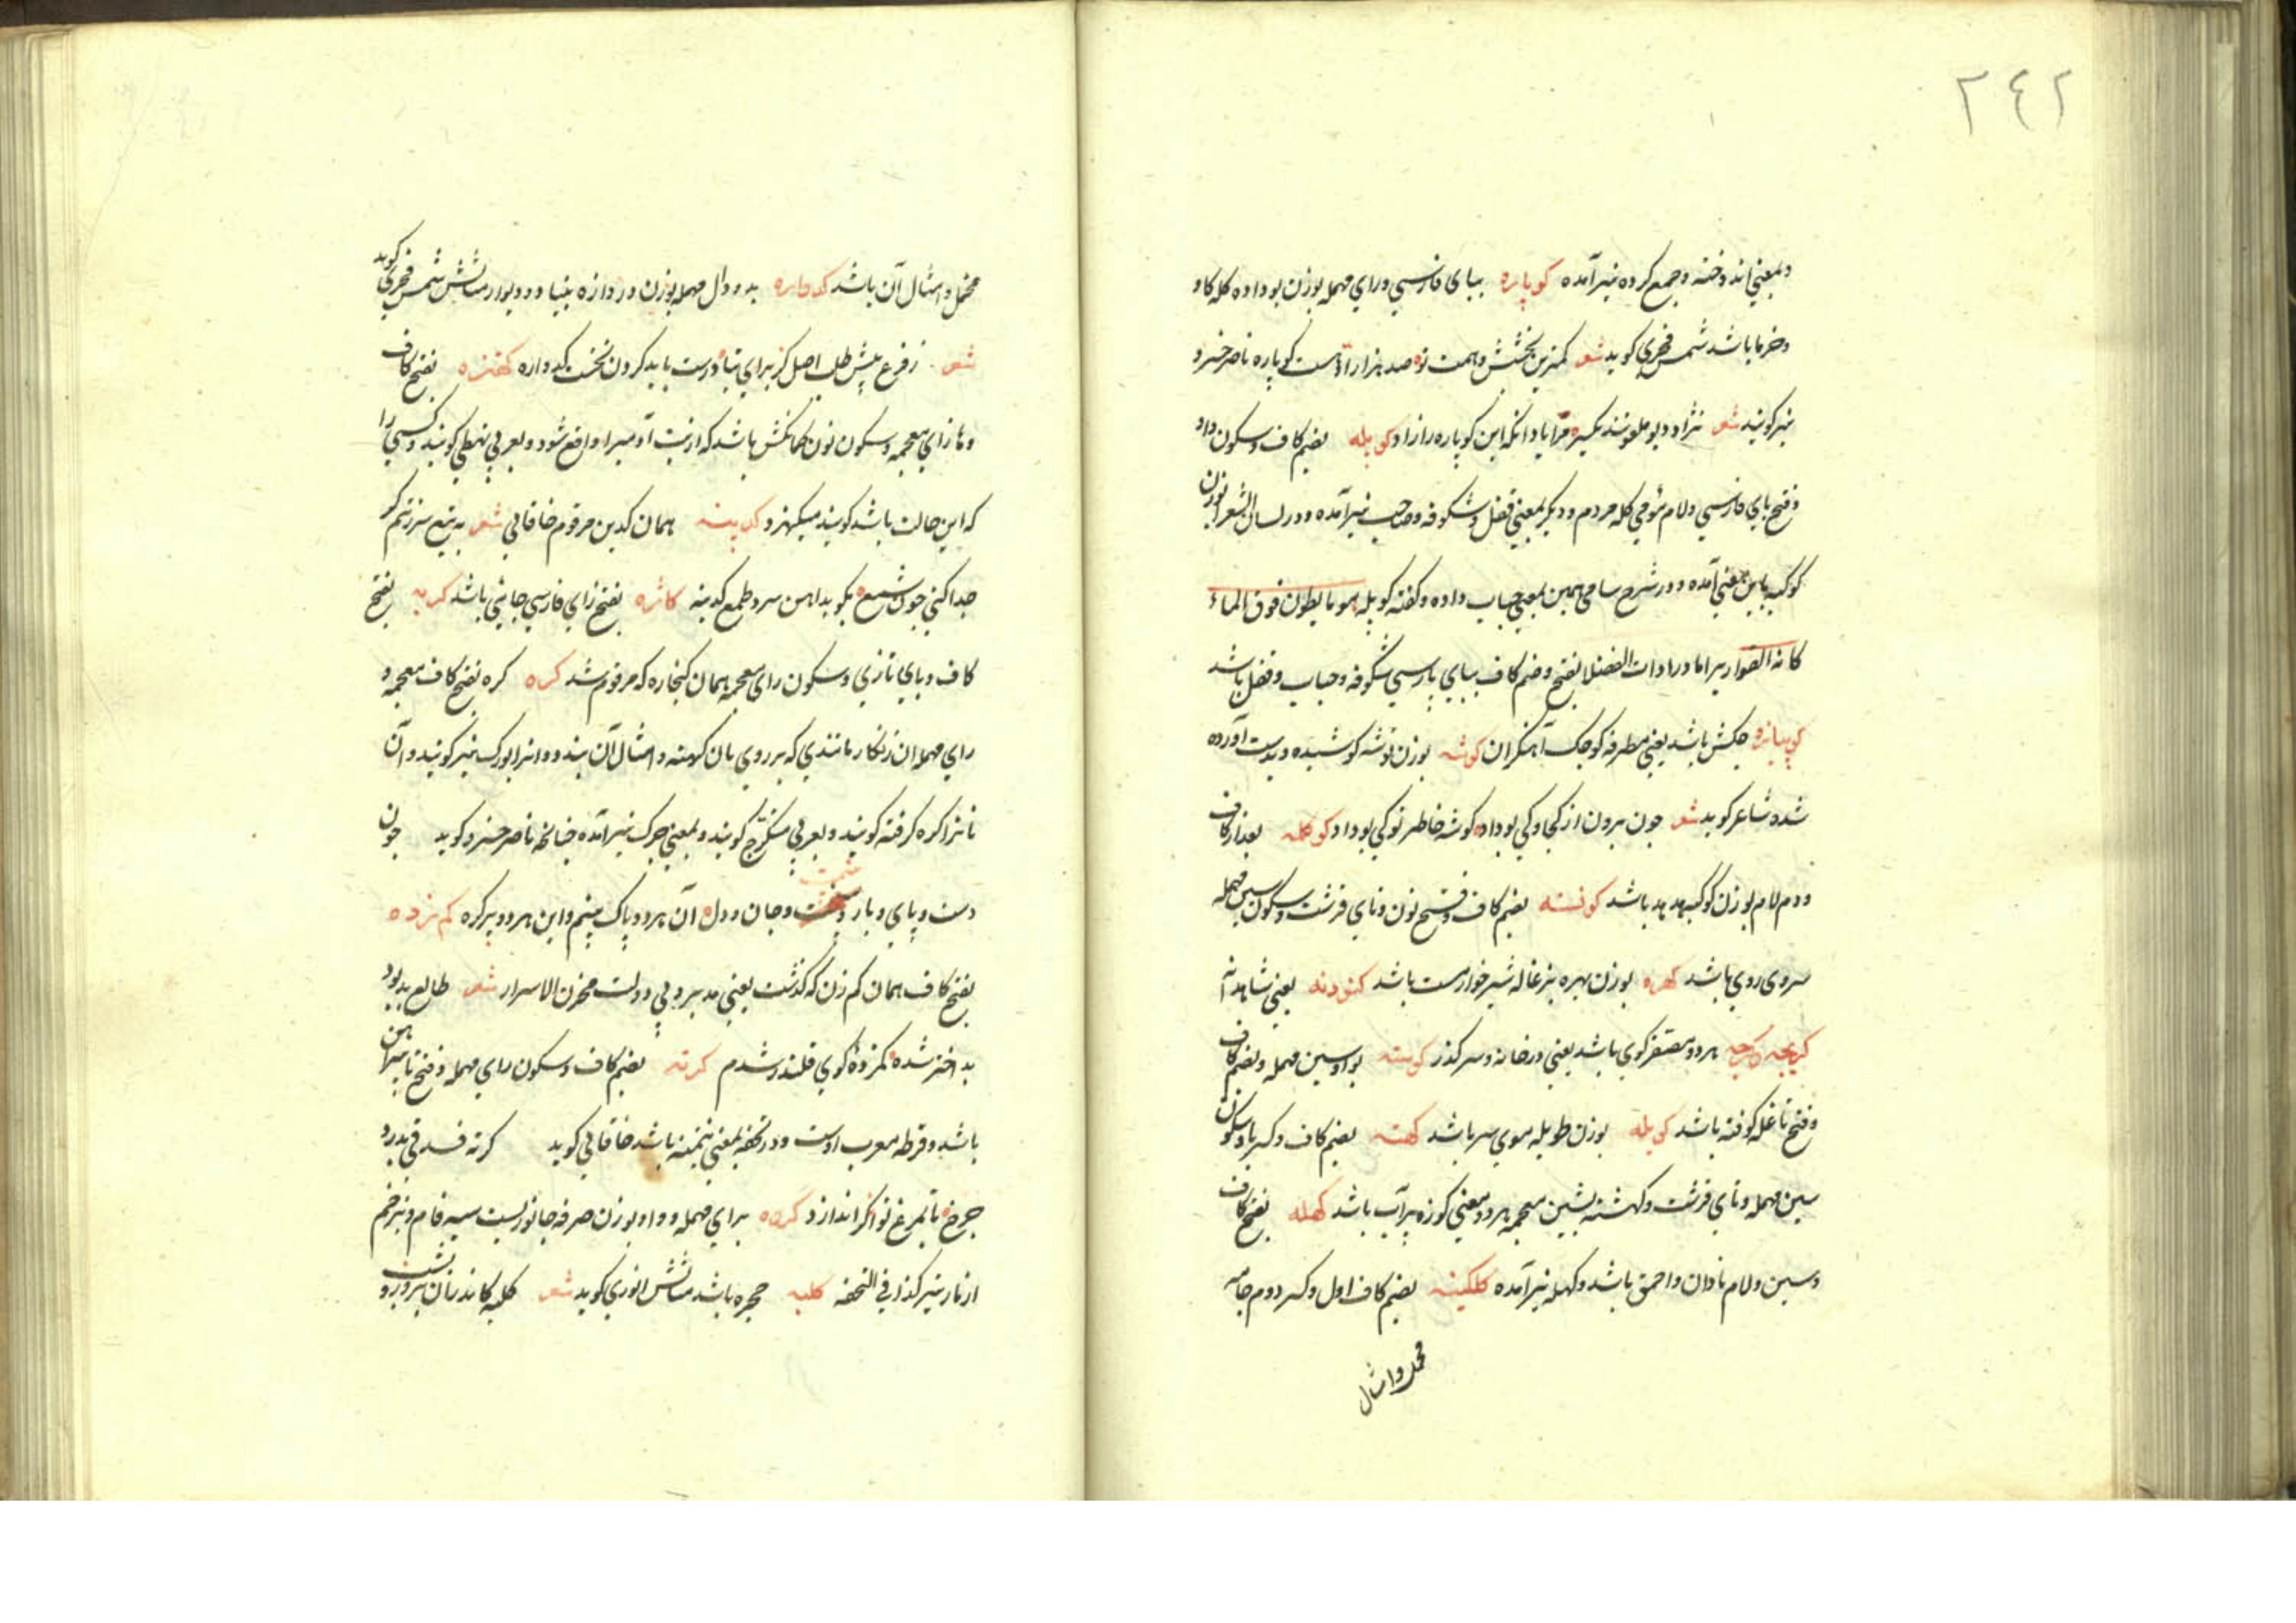 ٢٤٢
و بمعنی اندوخته و جمع کرده نیز آمده کوپاره ببای فارسی و رای مهمله بوزن بوداده کله کاو
و خر باشد شمس فخری کوید شعر کمترین بخشش و همت تو صد هزار است کوپاره ناصر خسرو
نیز کویند شعر نژاد دیو ملعونند یکسره مرا یاد انکه این کوپاره را زاد کوپله بضم کاف و سکون واو
و فتح بای فارسی و لام موی کله مردم و دیکر بمعنی قفل و شکوفه و حباب نیز آمده و در لسان الشعرا بوزن
کوکبه باین معنی آمده و در شرح سامی همین بمعنی حباب داده و کفته کوپله هو ما یطون فوق الماء
کانه القواریر اما در ادات الفضلا بفتح و ضم کاف ببای پارسی شکوفه و حباب و قفل باشد
چکش باشد یعنی مطرقه کوچک آهنکران کوشه بوزن توشه کوشیده و بدست آورده
شده شاعر کوید شعر چون برون از کجا و کی بود او کوشه خاطر تو کی بود او کوکله بعد از کاف
دوم لام بوزن کوکبه هدهد باشد کونسته بضم کاف و فتح نون و تای قرشت و سکون سین مهمله
سروی روی باشد کهره بوزن بهره بزغاله شیر خوار مست باشد کنودنه یعنی شاهدانه
کریچه هر دو مصغر کوی باشد یعنی در خانه و سر کذر کوسته بواو سین مهمله و بضم کاف
و فتح تا غله کوفته باشد کویله بوزن طویله موی سر باشد کهسته بضم کاف و کسر ها و سکون
سین مهمله و تای قرشت و کهشته بشین معجمه هر دو بمعنی کوزه پر آب باشد کهله بفتح کاف
و سین و لام نادان و احمق باشد و کهله نیز آمده کلکینه بضم کاف اول و کسر دوم جامه
مخمل و امثال
مخمل و امثال آن باشد کدواره بدو دال مهمله بوزن دروازه بنیاد و دیوار مثالش شمس فخری کوید
شعر ز فرع پیش طلب اصل کز برای بنا درست باید کردن نخست کدواره بفتح کاف
و ها زای معجمه و سکون نون کمانکش باشد که از پشت آدمی را واقع شود و بعربی تمطی کویند و کسی را
که این حالت باشد کویند میکهنزد کدینه همان کدین مرقوم خاقانی شعر به تیغ سرزنشم کر
جدا کنی چون شمع بکوبد آهن سرد طمع کدینه کاژه بفتح زای فارسی جانبی باشد بفتح
کاف و بای تازی و سکون رای معجمه همان کنجاره که مرقوم شد کره کره بفتح کاف معجمه و
رای مهمله آن زنکار مانندی که بر روی نان کهنه و امثال آن بندد و انرا بورک نیز کویند و آن
نانرا کره کرفته کویند و بعربی متکرج کویند و بمعنی چرک نیز آمده چنانچه ناصر خسرو کوید چون
دست و پای و بار و پشت و جان و دل آن هر دو پاک بینم و این هر دو پر کره کم زده
بفتح کاف همان کم زن که کذشت یعنی مدبر و بی دولت مخزن الاسرار شعر طالع بد بود
بد اختر شده کمزده کوی قلندر شدم کرته بضم کاف و سکون رای مهمله و فتح تا پیراهن
باشد و قرطه معرب اوست و در تحفه بمعنی نیمتنه باشد خاقانی کوید کرته فستقی بدرد
چرخ تا بمرغ نوا کر اندازد کروه برای مهمله و واو بوزن صرفه جانوریست سیه فام و بزخم
از مار نیز کذا فی التحفة کلبه حجره باشد مثالش انوری کوید شعر کلبه کاندر آن بروز و بشب